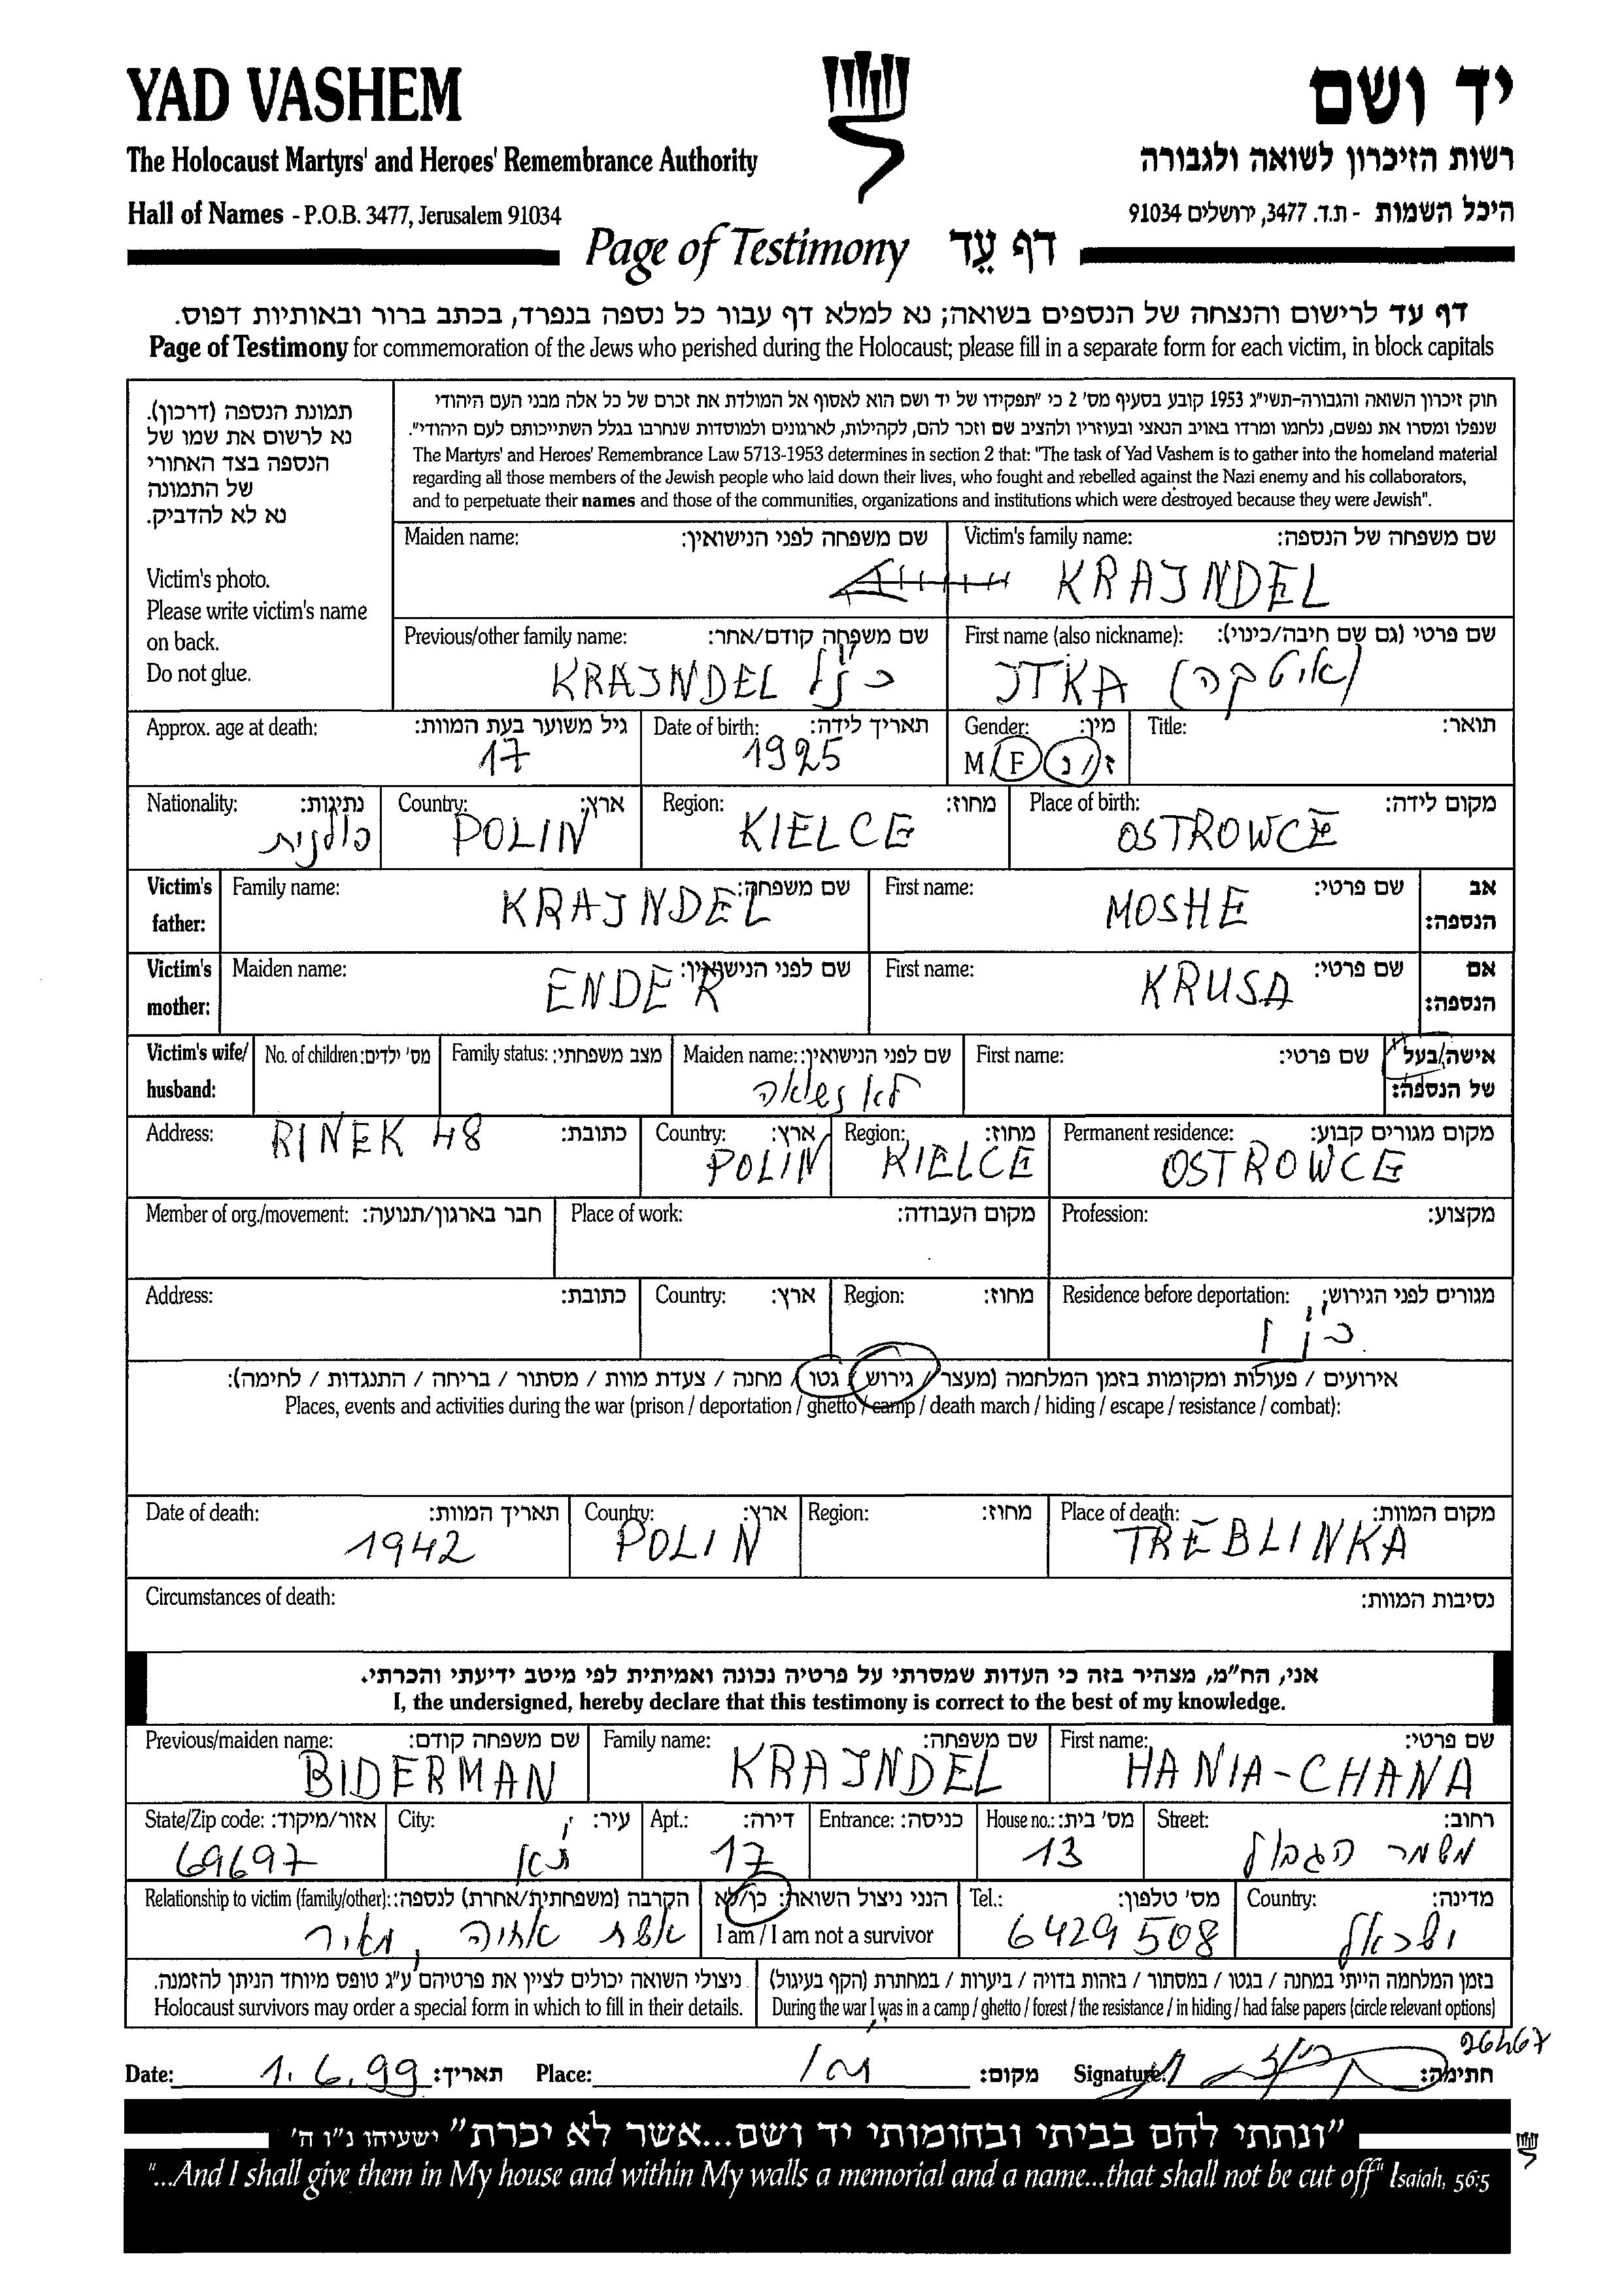 YAD VASHEM
יד ושם
The Holocaust Martyrs' and Heroes' Remembrance Authority
רשות הזיכרון לשואה ולגבורה
Hall of Names - P.O.B. 3477, Jerusalem 91034
היכל השמות - ת.ד. 3477, ירושלים 91034
Page of Testimony דף עֵד
דף עד לרישום והנצחה של הנספים בשואה; נא למלא דף עבור כל נספה בנפרד, בכתב ברור ובאותיות דפוס.
Page of Testimony for commemoration of the Jews who perished during the Holocaust; please fill in a separate form for each victim, in block capitals
תמונת הנספה (דרכון).
נא לרשום את שמו של
הנספה בצד האחורי
של התמונה
נא לא להדביק.
Victim's photo.
Please write victim's name
on back.
Do not glue.
חוק זיכרון השואה והגבורה-תשי"ג 1953 קובע בסעיף מס' 2 כי "תפקידו של יד ושם הוא לאסוף אל המולדת את זכרם של כל אלה מבני העם היהודי
שנפלו ומסרו את נפשם, נלחמו ומרדו באויב הנאצי ובעוזריו ולהציב שם וזכר להם, לקהילות, לארגונים ולמוסדות שנחרבו בגלל השתייכותם לעם היהודי".
The Martyrs' and Heroes' Remembrance Law 5713-1953 determines in section 2 that: "The task of Yad Vashem is to gather into the homeland material
regarding all those members of the Jewish people who laid down their lives, who fought and rebelled against the Nazi enemy and his collaborators,
and to perpetuate their names and those of the communities, organizations and institutions which were destroyed because they were Jewish".
Maiden name: שם משפחה לפני הנישואין:
Victim's family name: שם משפחה של הנספה:
KRAJNDEL
Previous/other family name: שם משפחה קודם/אחר:
KRAJNDEL כנ"ל
First name (also nickname): שם פרטי (גם שם חיבה/כינוי):
JTKA (איטקה)
Approx. age at death: גיל משוער בעת המוות:
17
Date of birth: תאריך לידה:
1925
Gender: מין:
M/F ז/נ
Title: תואר:
Nationality: נתינות:
פולנית
Country: ארץ:
POLIN
Region: מחוז:
KIELCE
Place of birth: מקום לידה:
OSTROWCE
Victim's father: Family name: שם משפחה:
KRAJNDEL
First name: שם פרטי: אב הנספה:
MOSHE
Victim's mother: Maiden name: שם לפני הנישואין:
ENDER
First name: שם פרטי: אם הנספה:
KRUSA
Victim's wife/ husband: No. of children: מס' ילדים: Family status: מצב משפחתי: Maiden name: שם לפני הנישואין:
לא נשואה
First name: שם פרטי: אישה/בעל של הנספה:
Address: כתובת:
RINEK 48
Country: ארץ:
POLIN
Region: מחוז:
KIELCE
Permanent residence: מקום מגורים קבוע:
OSTROWCE
Member of org./movement: חבר בארגון/תנועה: Place of work: מקום העבודה: Profession: מקצוע:
Address: כתובת: Country: ארץ: Region: מחוז: Residence before deportation: מגורים לפני הגירוש:
אירועים / פעולות ומקומות בזמן המלחמה (מעצר / גירוש / גטו / מחנה / צעדת מוות / מסתור / בריחה / התנגדות / לחימה):
Places, events and activities during the war (prison / deportation / ghetto / camp / death march / hiding / escape / resistance / combat):
Date of death: תאריך המוות:
1942
Country: ארץ:
POLIN
Region: מחוז:
Place of death: מקום המוות:
TREBLINKA
Circumstances of death: נסיבות המוות:
אני, הח"מ, מצהיר בזה כי העדות שמסרתי על פרטיה נכונה ואמיתית לפי מיטב ידיעתי והכרתי.
I, the undersigned, hereby declare that this testimony is correct to the best of my knowledge.
Previous/maiden name: שם משפחה קודם:
BIDERMAN
Family name: שם משפחה:
KRAJNDEL
First name: שם פרטי:
HANIA-CHANA
State/Zip code: אזור/מיקוד:
69697
City: עיר:
ת"א
Apt.: דירה:
17
Entrance: כניסה:
House no.: מס' בית:
13
Street: רחוב:
משמר הגבול
Relationship to victim (family/other): הקרבה (משפחתית/אחרת) לנספה:
אשת אחיה, מאיר
הנני ניצול השואה: כן/לא
I am / I am not a survivor
Tel.: מס' טלפון:
6429508
Country: מדינה:
ישראל
ניצולי השואה יכולים לציין את פרטיהם ע"ג טופס מיוחד הניתן להזמנה.
Holocaust survivors may order a special form in which to fill in their details.
בזמן המלחמה הייתי במחנה / בגטו / במסתור / בזהות בדויה / ביערות / במחתרת (הקף בעיגול)
During the war I was in a camp / ghetto / forest / the resistance / in hiding / had false papers (circle relevant options)
26467
Date: 1.6.99 תאריך: Place: מקום: Signature: חתימה:
"ונתתי להם בביתי ובחומותי יד ושם...אשר לא יכרת" ישעיהו נ"ו ה'
"...And I shall give them in My house and within My walls a memorial and a name...that shall not be cut off" Isaiah, 56:5